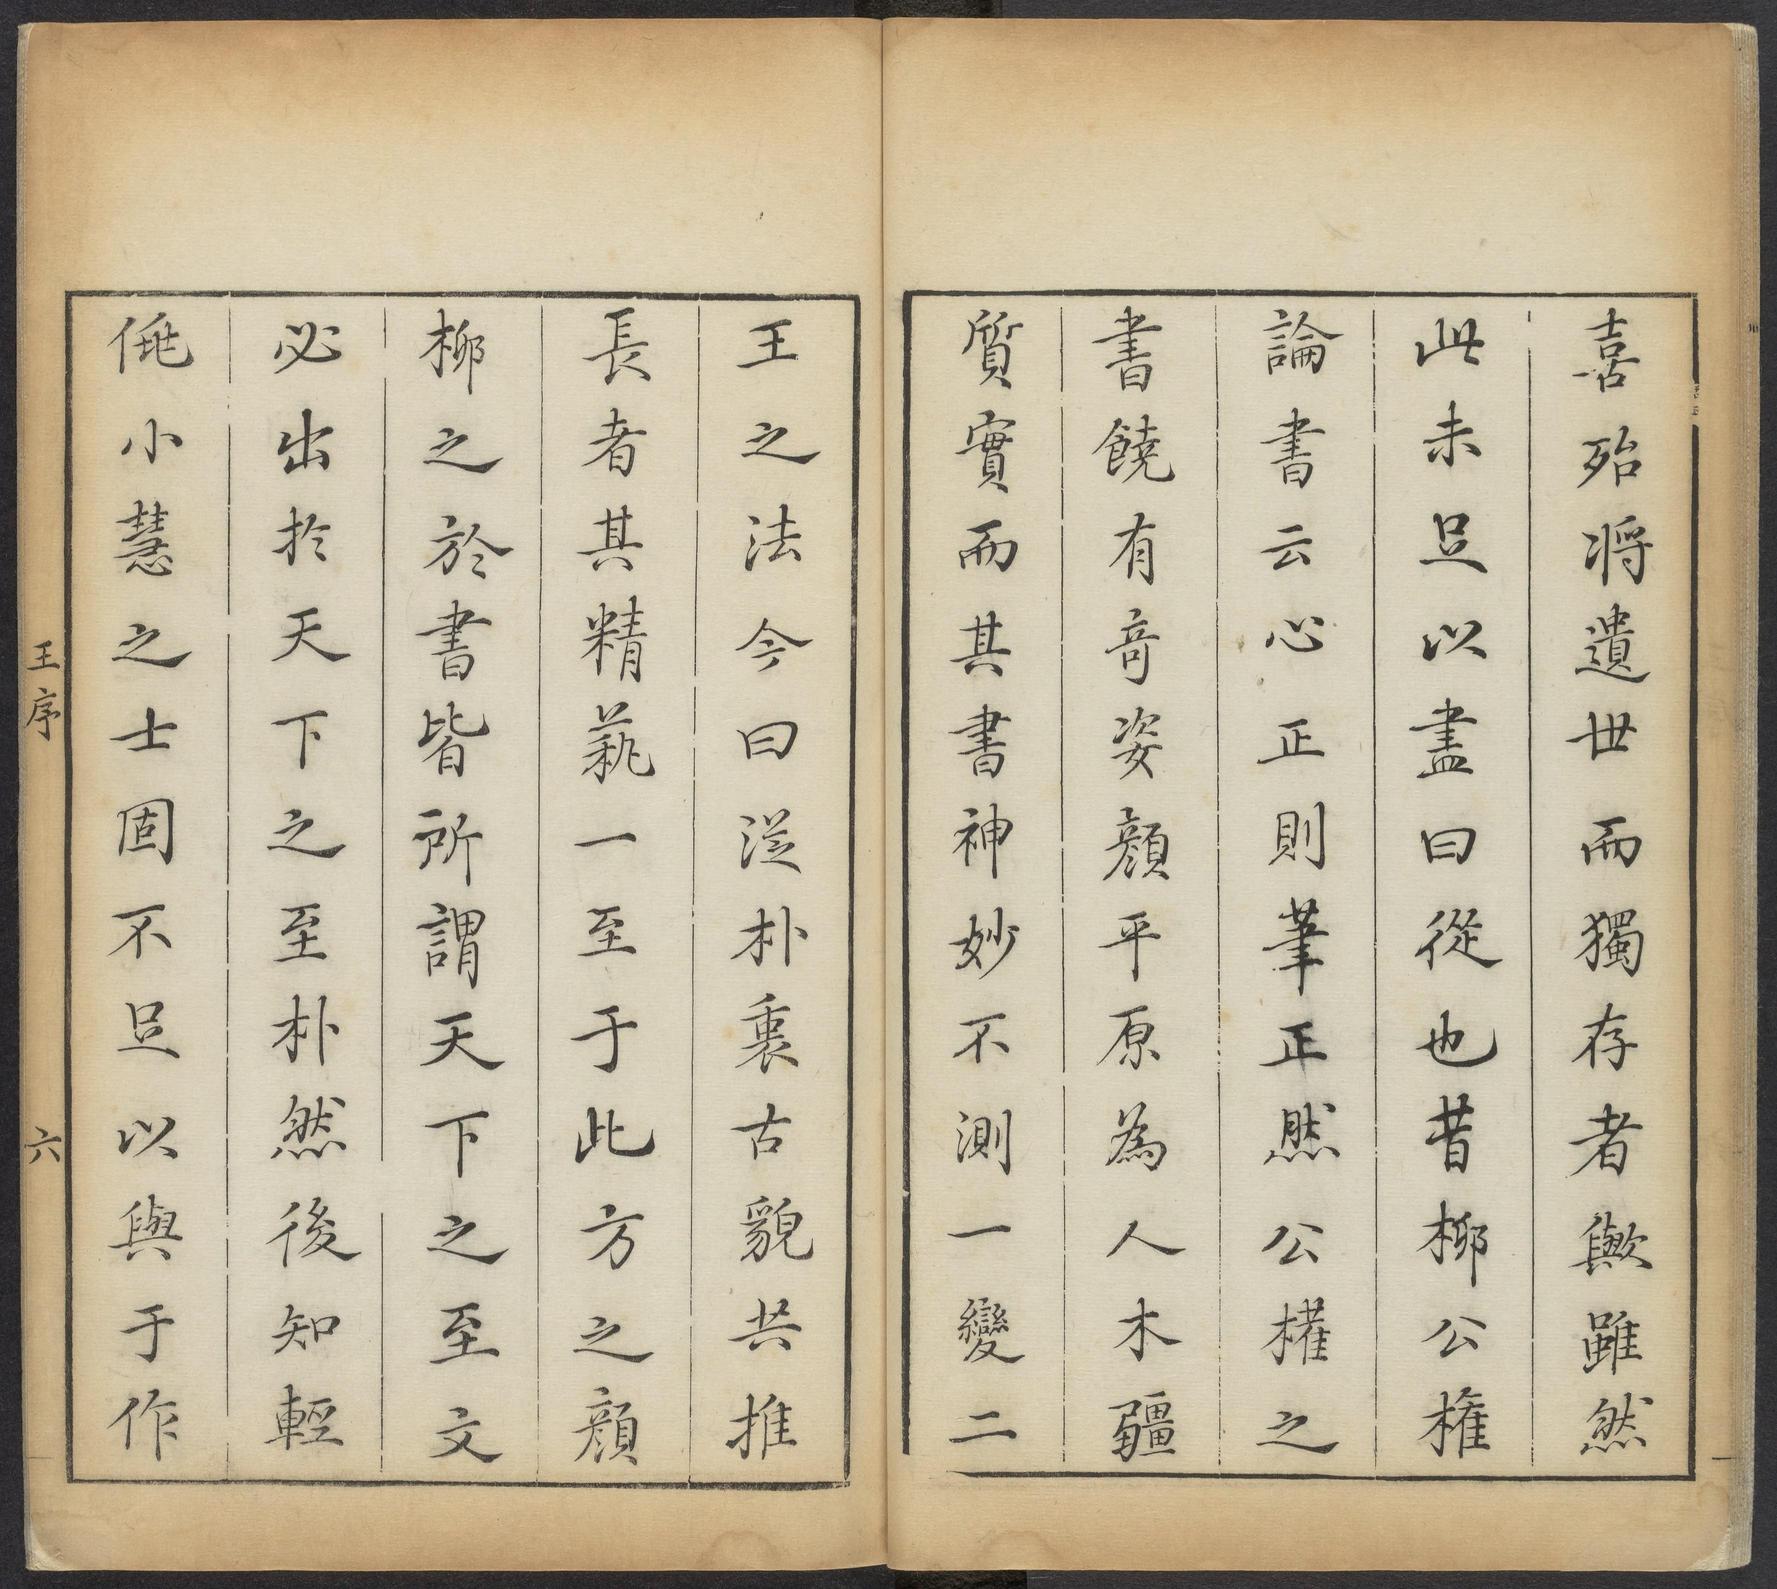 喜殆将遺世而獨存者歟雖然
此未足以盡曰從也昔柳公權
論書云心正則筆正然公權之
書饒有奇姿顔平原為人木彊
質實而其書神妙不測一變二
王之法今曰從朴裏古貌共推
長者其精蓺一至于此方之顔
柳之於書皆所謂天下之至文
必出於天下之至朴然後知輕
俛小慧之士固不足以與于作
王序
六